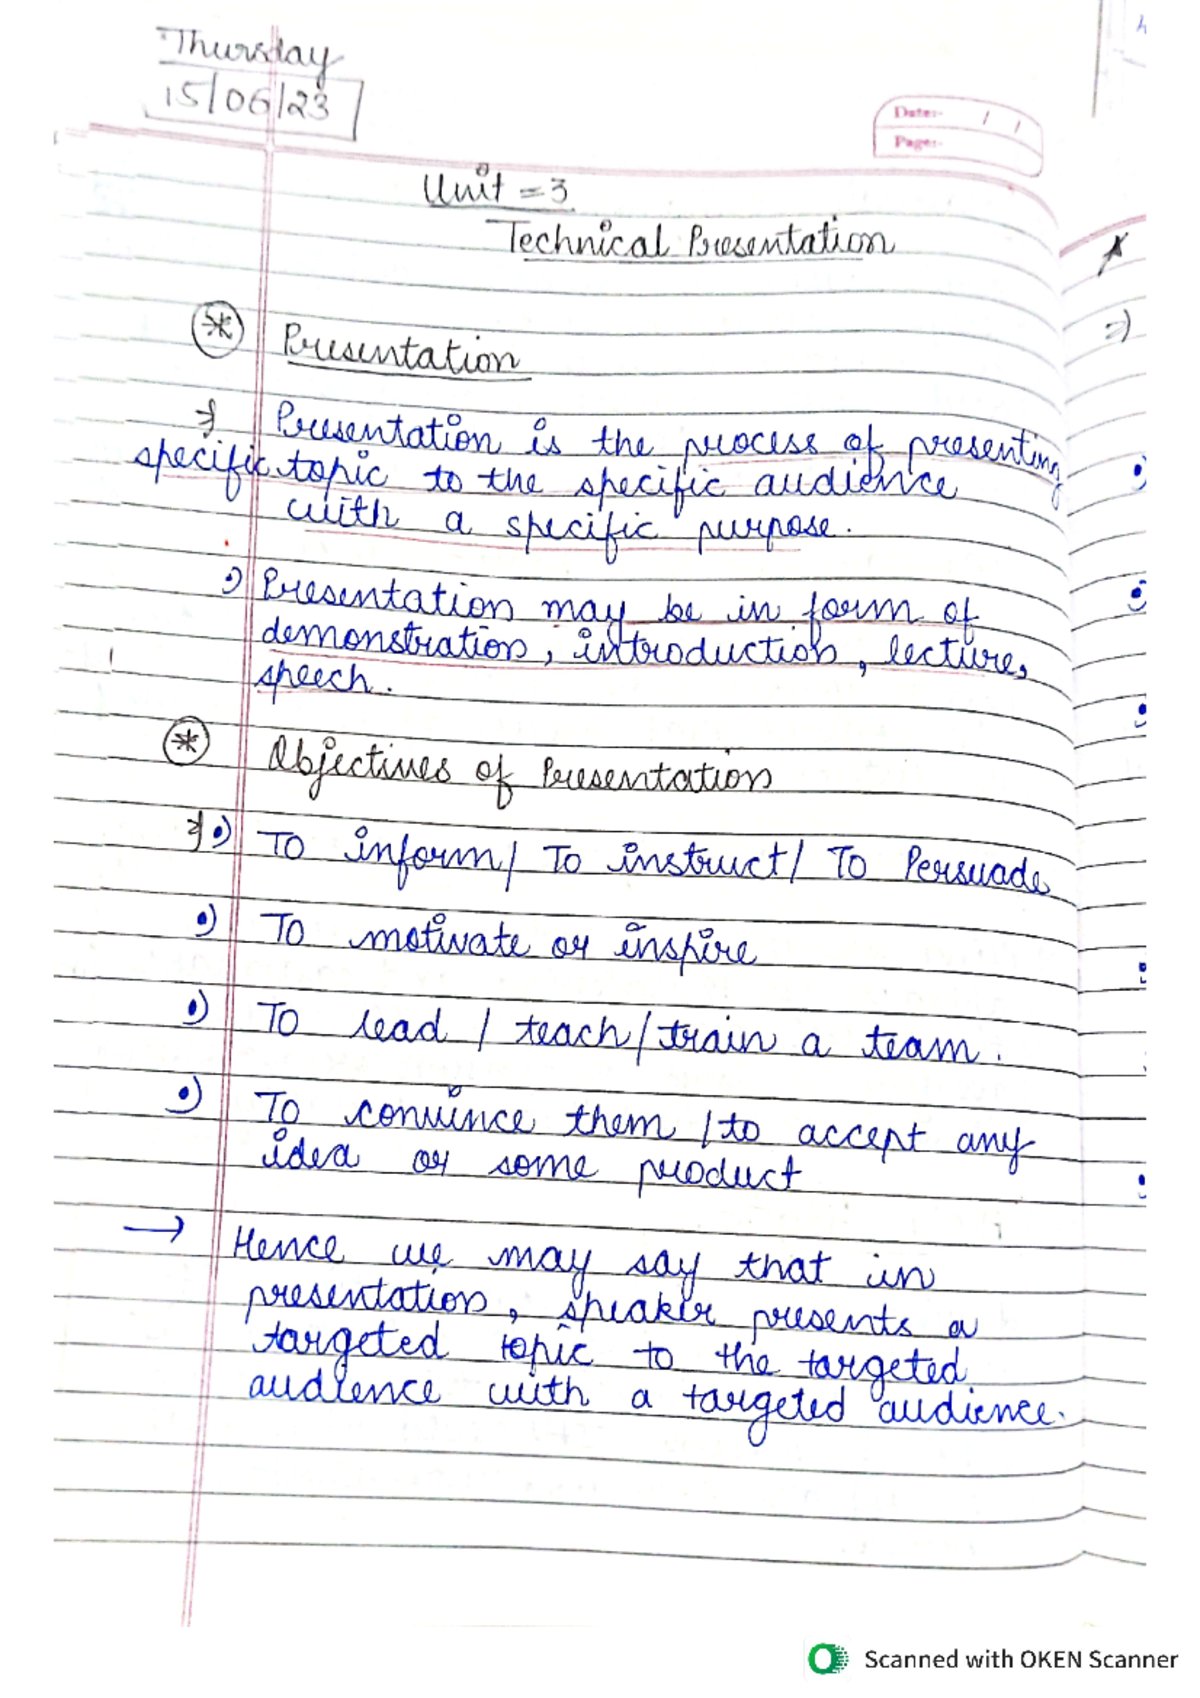 Thursday
15/06/23
Date:- / /
Page:-
Unit = 3
Technical Presentation
Presentation
Presentation is the process of presenting
specific topic to the specific audience
with a specific purpose.
Presentation may be in form of
demonstration, introduction, lecture,
speech.
Objectives of Presentation
To inform/ To instruct/ To Persuade
To motivate or inspire
To lead / teach/train a team.
To convince them /to accept any
idea or some product
→ Hence we may say that in
presentation, speaker presents a
targeted topic to the targeted
audience with a targeted audience.
Scanned with OKEN Scanner